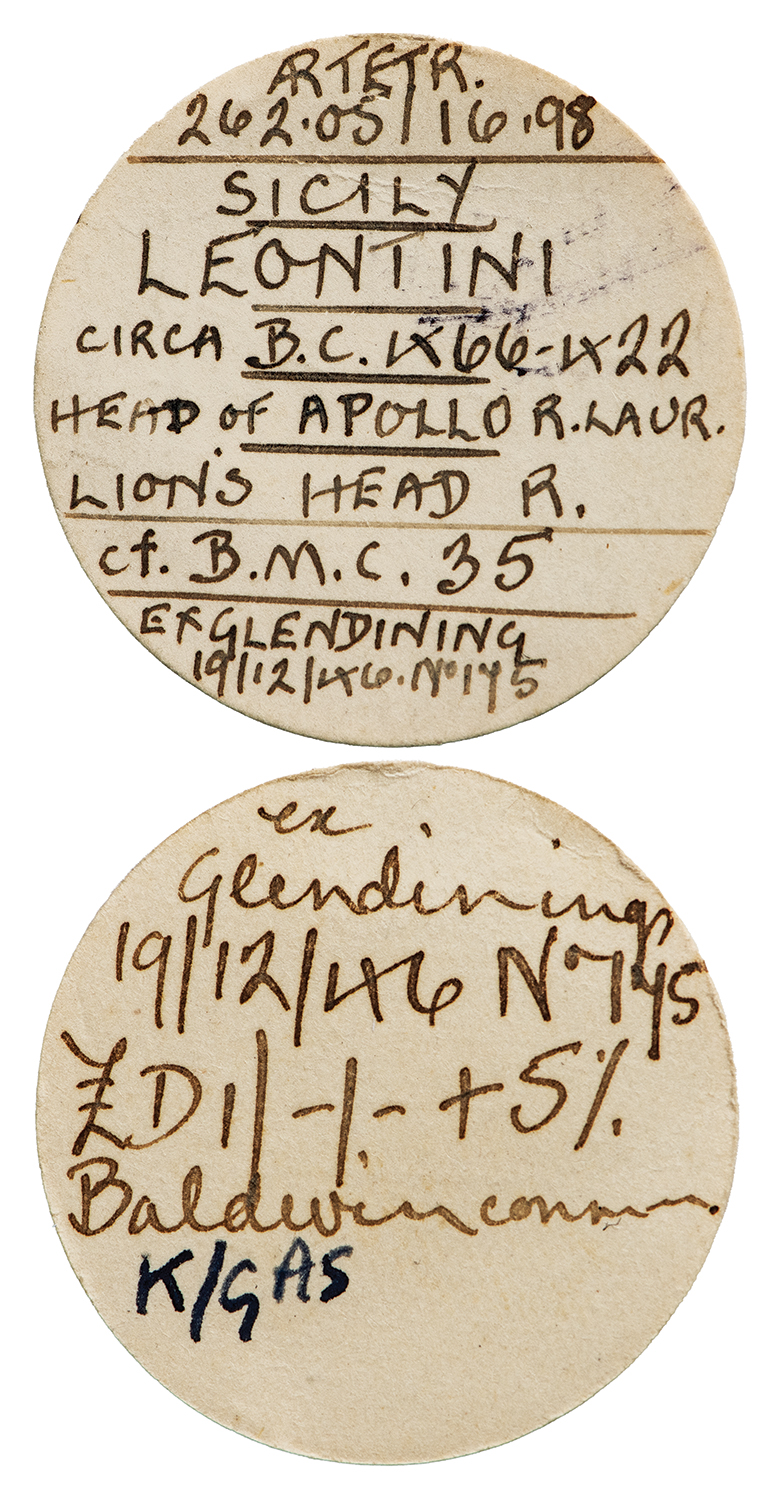 ÆR TETR.
262.05 / 16.98
SICILY
LEONTINI
CIRCA B.C. 466-422
HEAD OF APOLLO R. LAUR.
LION'S HEAD R.
cf. B.M.C. 35
EX GLENDINING
19/12/46. No 175
ex
Glendining
19/12/46 No 175
£D1/-/- + 5%
Baldwin comm.
K/GAS